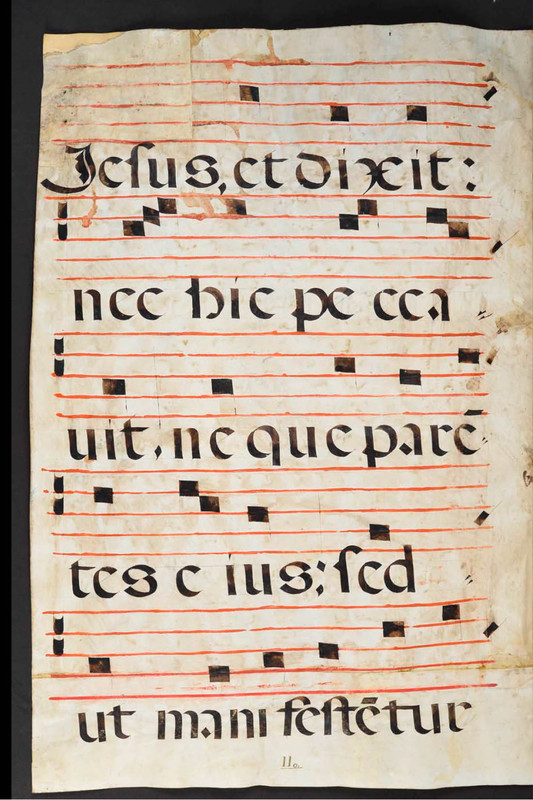 Jeſus, et dixit:
nec hic pecca-
uit, neque parē-
tes eius; ſed
ut manifeſtētur
110